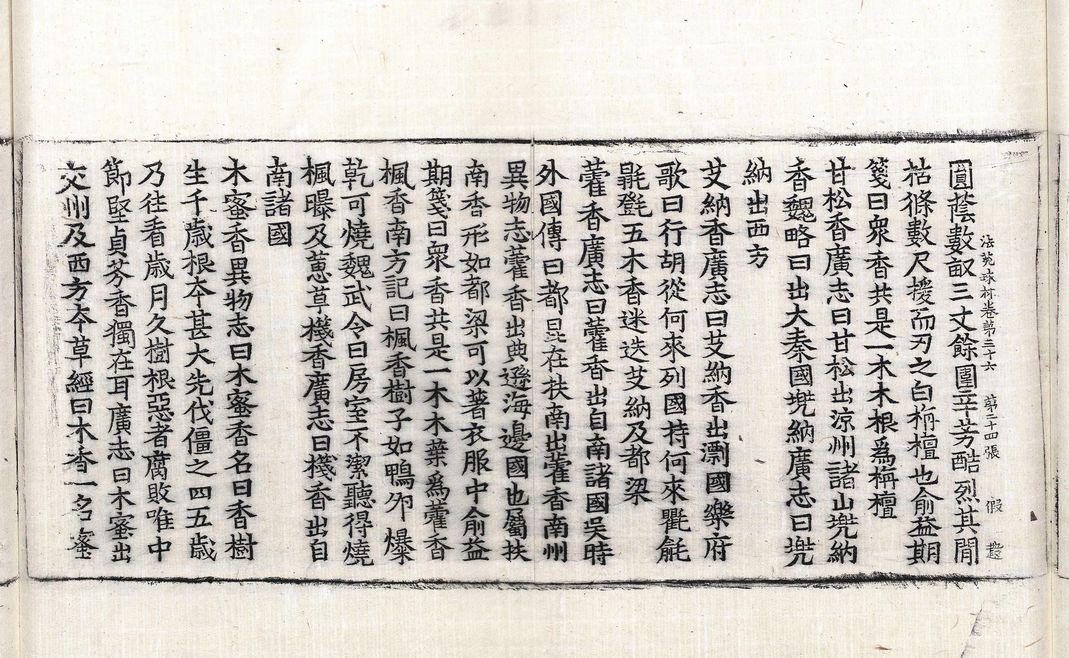 圓蔭數畝三丈餘圍辛芳酷烈其間
法苑珠林卷第三十六　第二十四張　假
枯條數尺援而刃之白栴檀也俞益期
箋曰衆香共是一木木根爲栴檀
甘松香廣志曰甘松出涼州諸山兠納
香魏略曰出大秦國兠納廣志曰兠
納出西方
艾納香廣志曰艾納香出剽國樂府
歌曰行胡從何來列國持何來氍毹
㲪㲪五木香迷迭艾納及都梁
藿香廣志曰藿香出自南諸國吳時
外國傳曰都昆在扶南出藿香南州
異物志藿香出典遜海邊國也屬扶
南香形如都梁可以著衣服中俞益
期箋曰衆香共是一木木葉爲藿香
楓香南方記曰楓香樹子如鴨夘爆
乾可燒魏武令曰房室不潔聽得燒
楓曝及蕙草棧香廣志曰棧香出自
南諸國
木蜜香異物志曰木蜜香名曰香樹
生千歲根夲甚大先伐僵之四五歲
乃往看歲月久樹根惡者腐敗唯中
節堅貞芬香獨在耳廣志曰木蜜出
交州及西方夲草經曰木香一名蜜